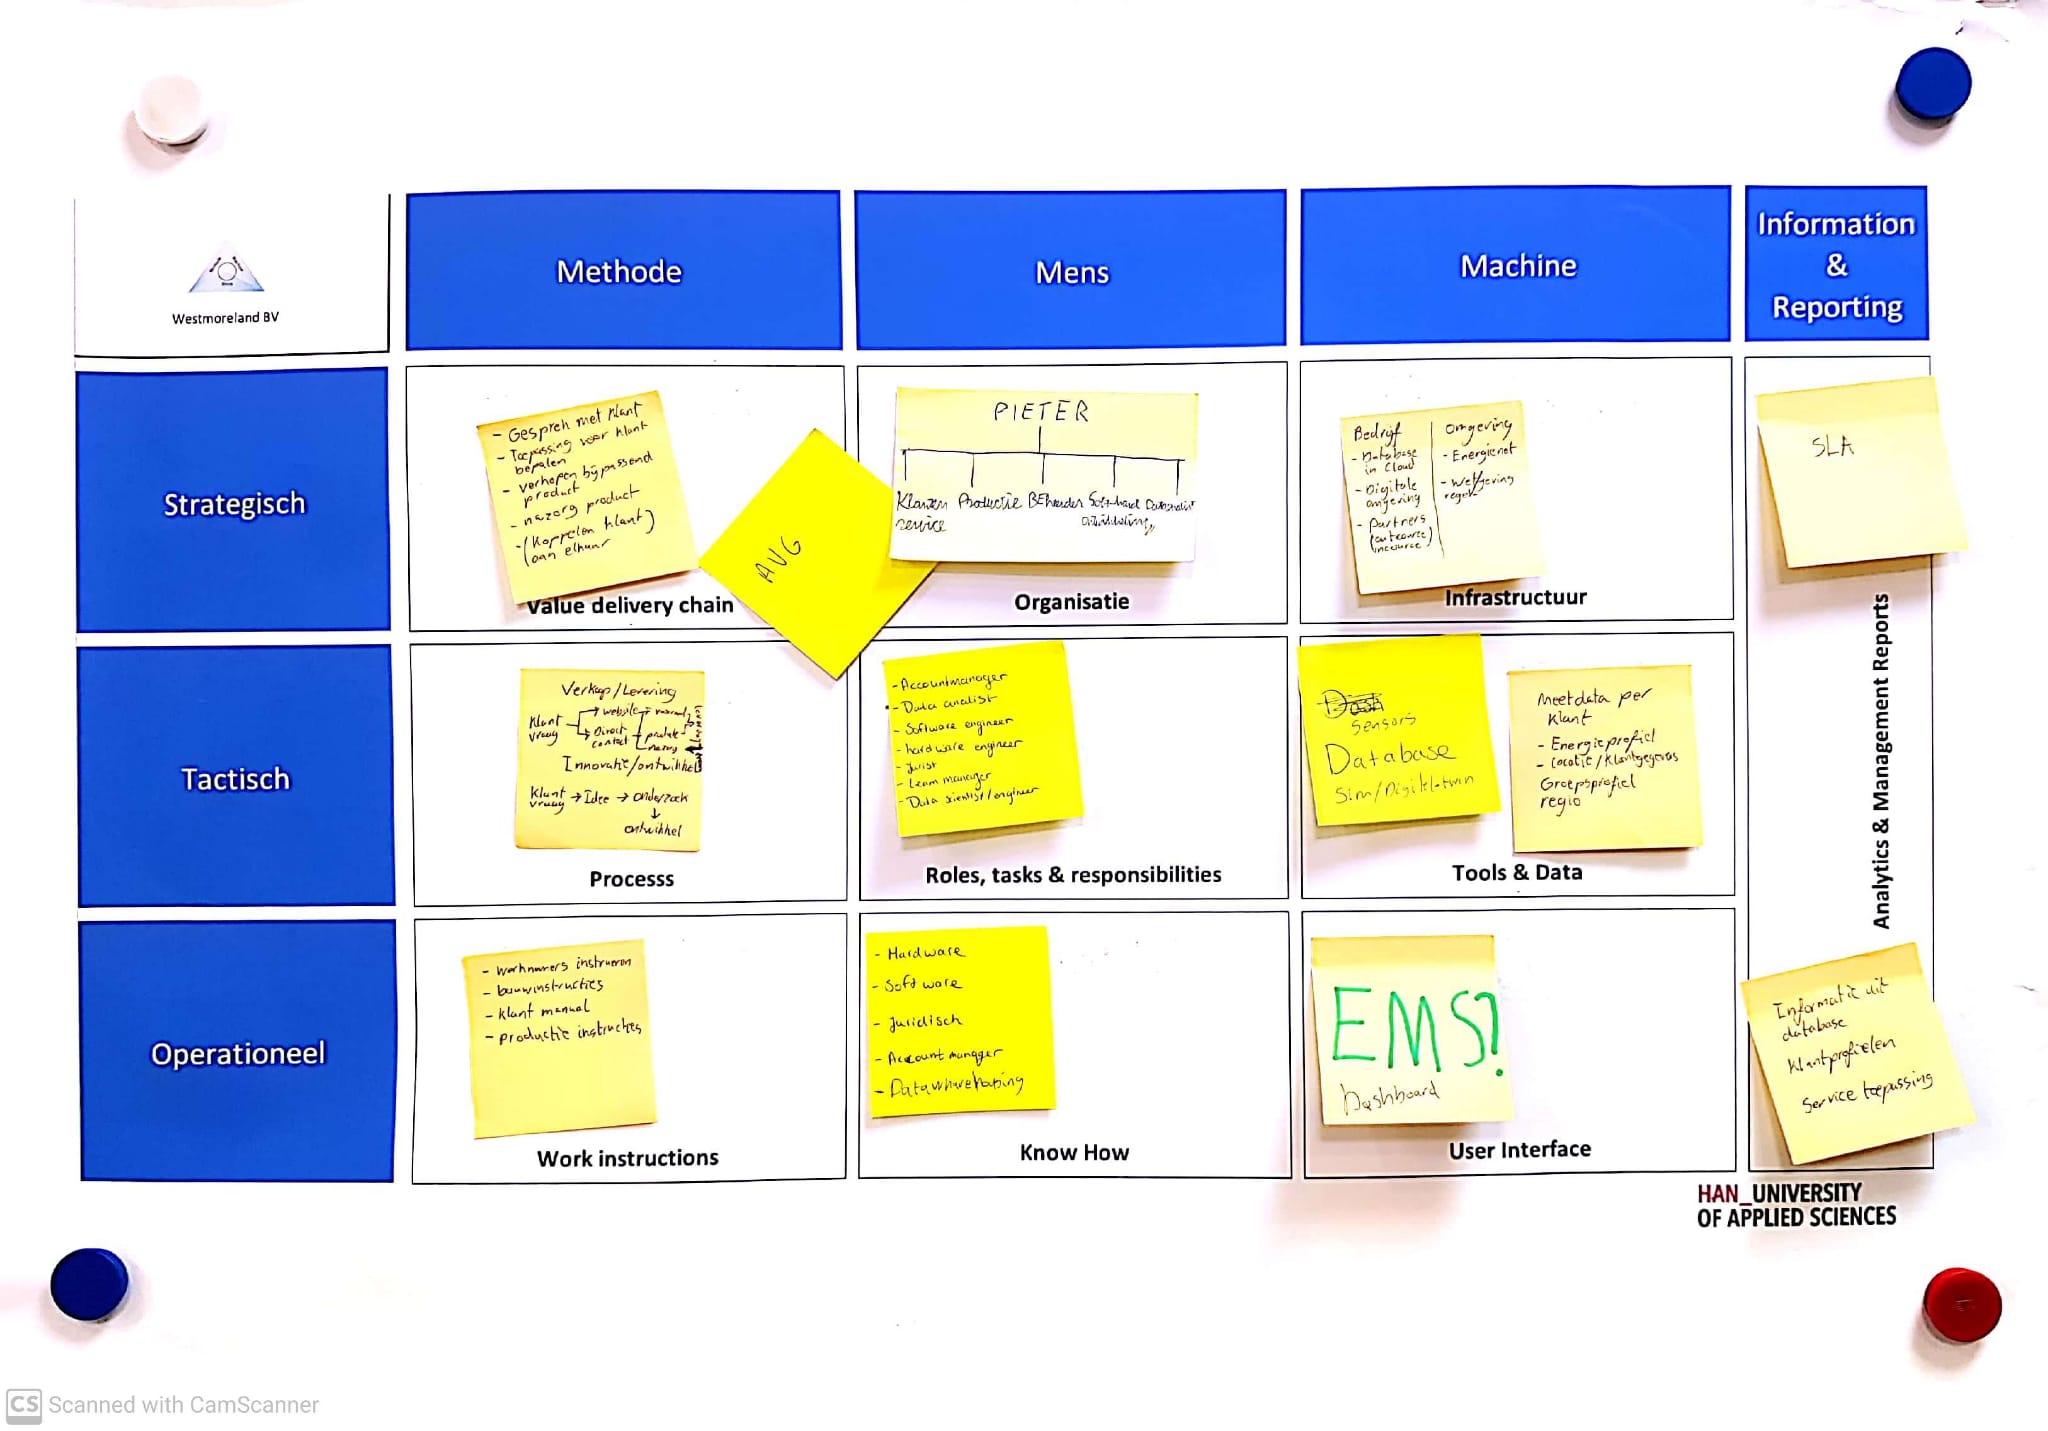 Westmoreland BV
Methode
Mens
Machine
Information
&
Reporting
Strategisch
- Gespreh met klant
- Toepassing voor klant
bepalen
- verhopen bijpassend
product
- nazorg product
- (Koppelen klant)
(aan elhaar
Value delivery chain
AVG
PIETER
Klanten Productie BEheerder
service
Organisatie
Bedrijf
- Database
in Cloud
- Digitale
omgeving
- Partners
(outsource)
(incource)
omgeving
- Energienet
- Wetgeving
Infrastructuur
SLA
Analytics & Management Reports
Tactisch
Verkoop/Levering
Klant
vraag
website
Direct
contact
Innovatie/ontwikkel
Klant → Idee → onderzoek
vraag
↓
ontwikkel
Processs
- Accountmanager
- Data analist
- Software engineer
- hardware engineer
- Jurist
- team manager
- Data scientist/engineer
Roles, tasks & responsibilities
sensors
Database
Sim/Digitaletwin
Meetdata per
klant
- Energieprofiel
- Locatie/Klantgegevens
Groepsprofiel
regio
Tools & Data
Operationeel
- werknemers instrueren
- bouwinstructies
- klant manual
- productie instructies
Work instructions
- Hardware
- Software
- Juridisch
- Account manager
Know How
EMS?
Dashboard
User Interface
Informatie uit
database
Klantprofielen
Service toepassing
HAN_UNIVERSITY
OF APPLIED SCIENCES
CS Scanned with CamScanner